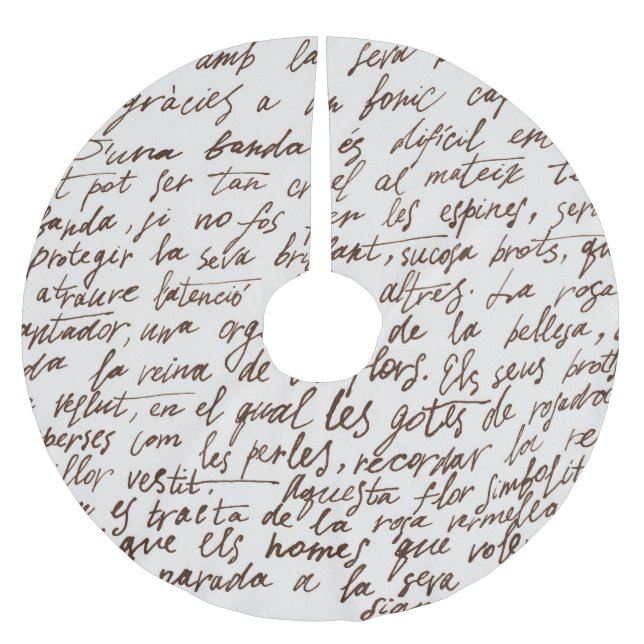 amb la seva
gràcies a un bonic cap
D'una banda és difícil en
pot ser tan cruel al mateix te
banda, si no fos per les espines, seri
protegir la seva brillant, sucosa brots, qu
atraure l'atenció altres. La rosa
antador, una org de la bellesa,
da la reina de flors. Els seus brots
vellut, en el qual les gotes de rosada
perses com les perles, recordar la re
llor vestit. Aquesta flor simbolit
es tracta de la rosa vermella
que els homes que vole
narada a la seva